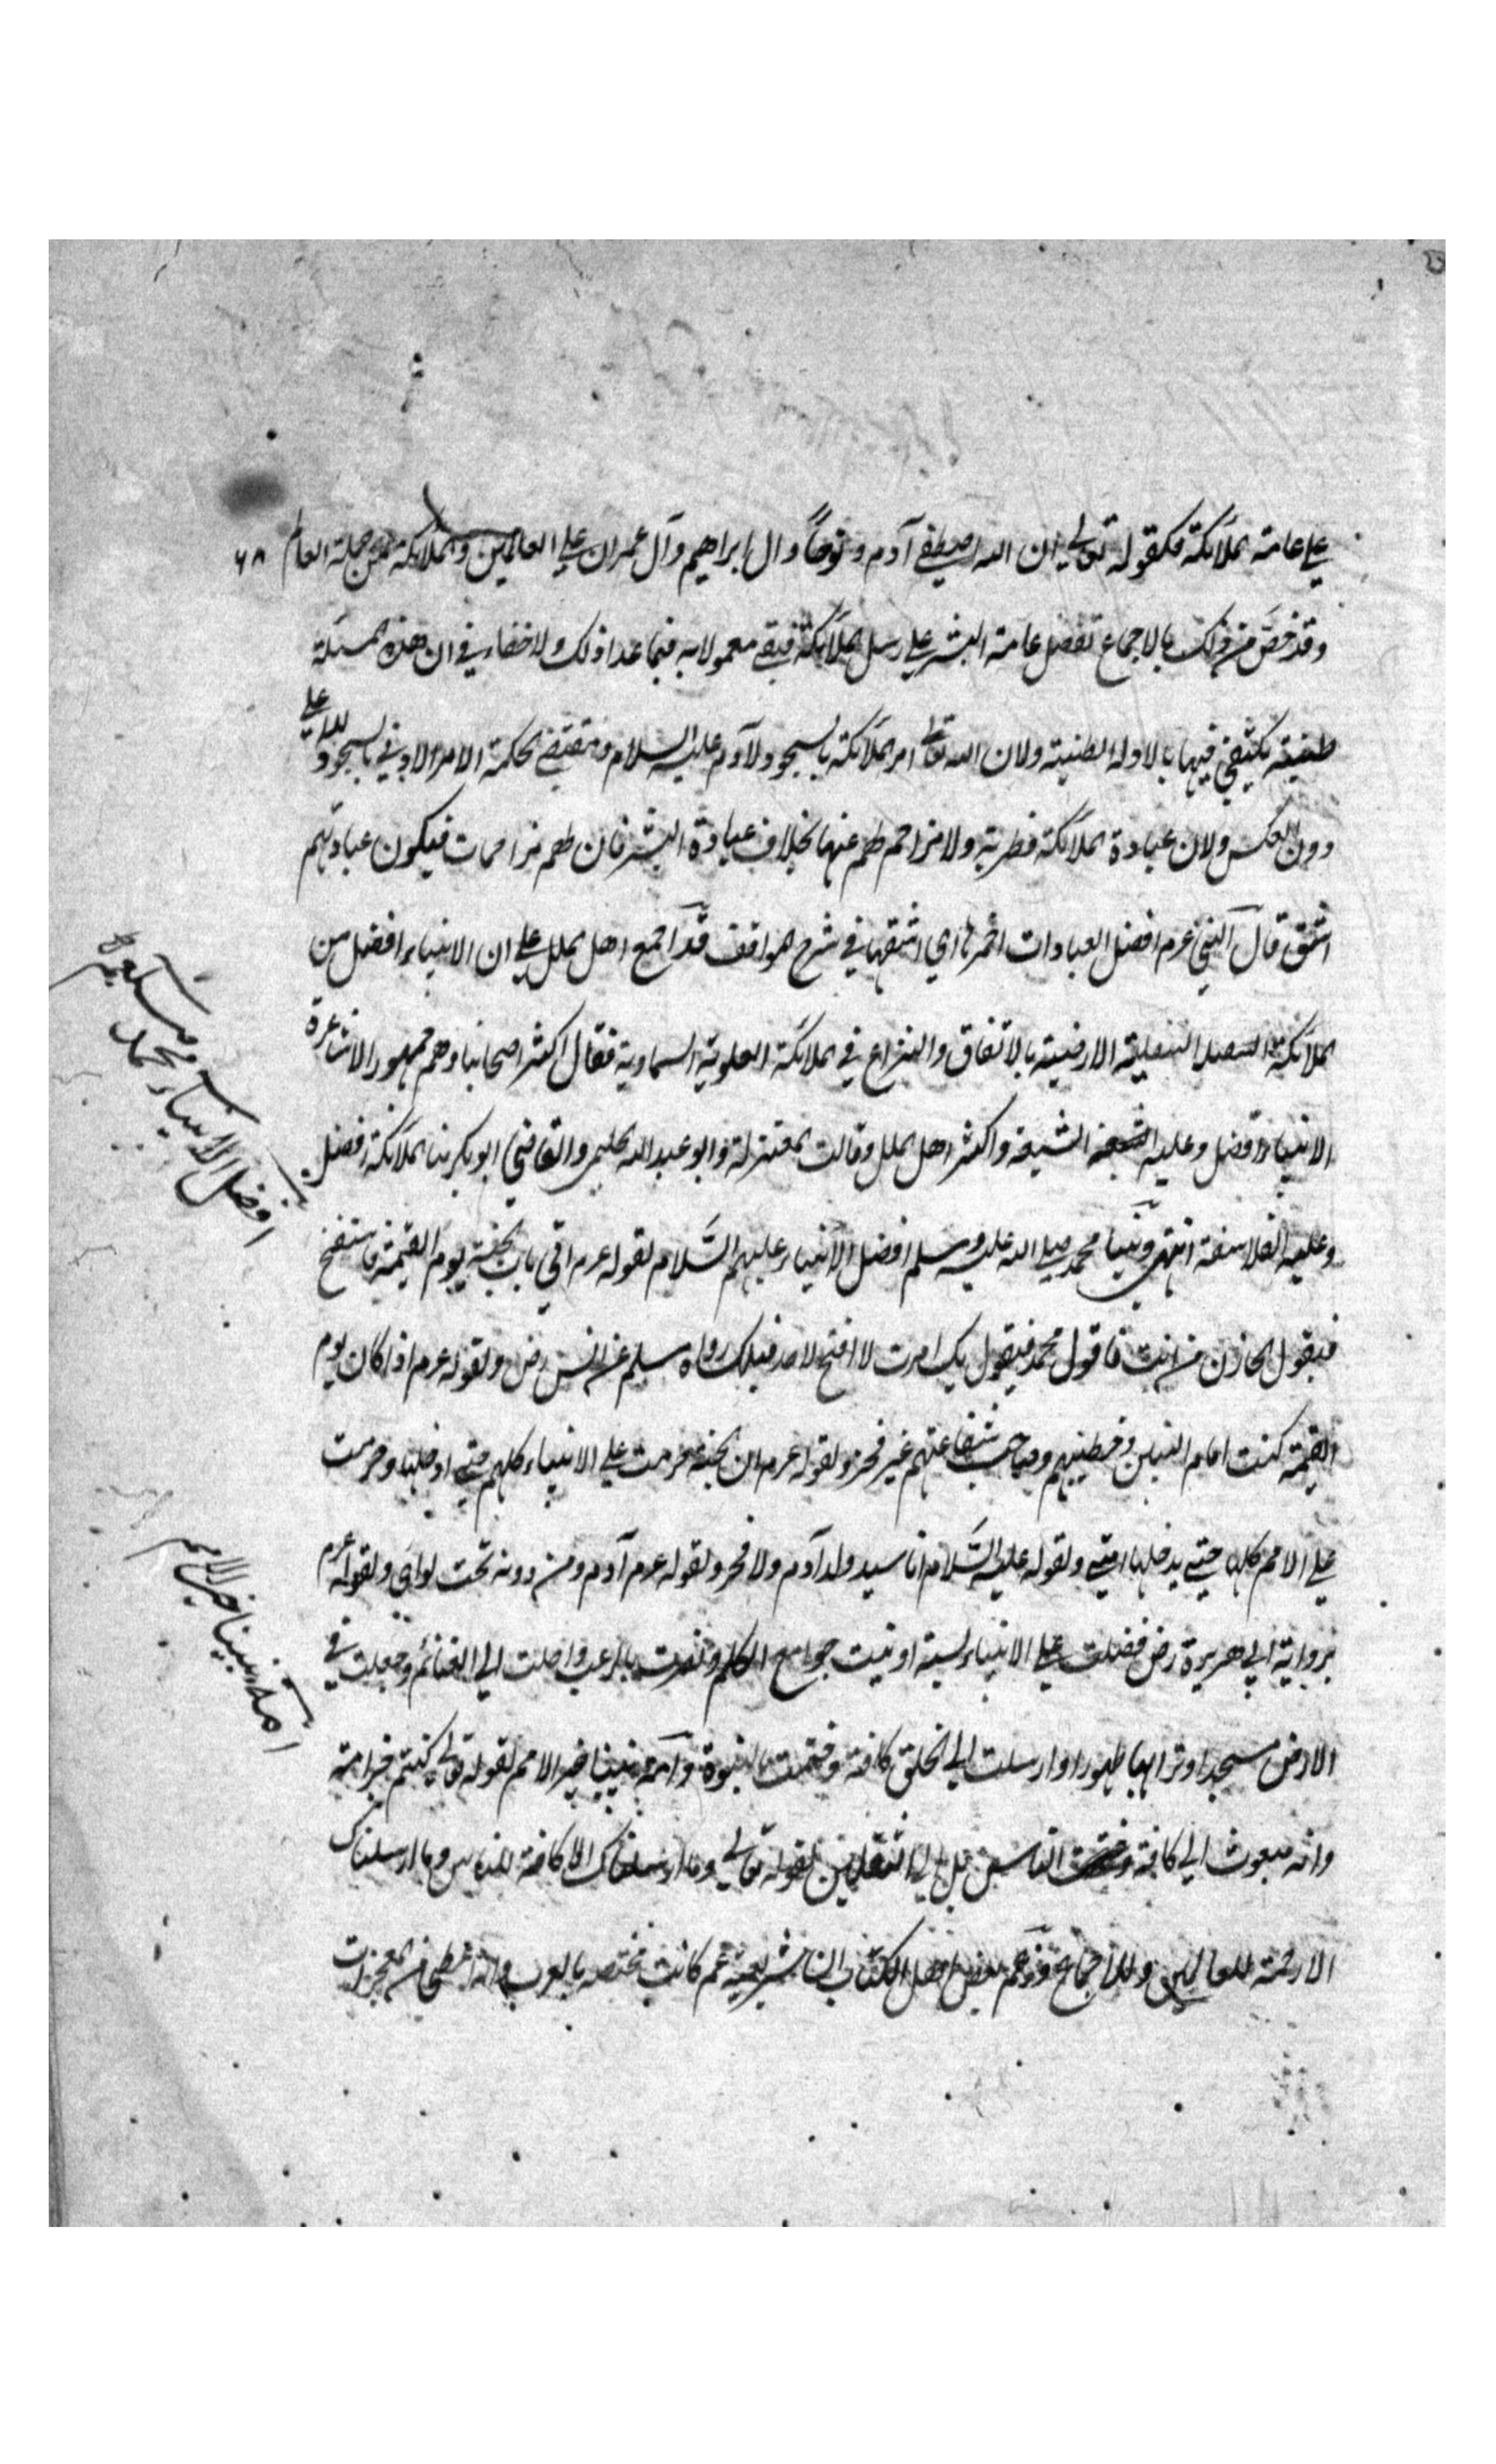 على عامة الملائكة فكقوله تعالى ان الله اصطفى آدم ونوحاً وال ابراهيم وآل عمران على العالمين والملائكة من جملة العالم
٦٨
وقد خص من ذلك بالاجماع تفضل عامة البشر على رسل الملائكة فبقى معمولا به فيما عدا ذلك ولا خفاء في ان هذه المسئلة
ظنية يكتفى فيها بالادلة الظنية ولان الله تعالى امر الملائكة بالسجود لآدم عليه السلام ومقتضى الحكمة الامر الادنى بالسجود للاعلى
دون العكس ولان عبادة الملائكة فطرية ولا مزاحم لهم عنها بخلاف عبادة البشر فان لهم مزاحمات فيكون عبادتهم
اشق قال النبي عرم افضل العبادات احمزها اي اشقها في شرح المواقف قد اجمع اهل الملل على ان الانبياء افضل من
الملائكة السفلية الارضية بالاتفاق والنزاع في الملائكة العلوية السماوية فقال اكثر اصحابنا وهم جمهور الاشاعرة
الانبياء افضل وعليه الشيعة واكثر اهل الملل وقالت المعتزلة وابو عبد الله الحليمي والقاضي ابو بكر منا الملائكة افضل
وعليه الفلاسفة انتهى ونبينا محمد صلى الله عليه وسلم افضل الانبياء عليهم السَّلام لقوله عرم اتي باب الجنة يوم القيمة فاستفتح
فيقول الخازن من انت فاقول محمد فيقول بك امرت لا افتح لاحد قبلك رواه مسلم عن انس رض ولقوله عرم اذا كان يوم
القيمة كنت امام النبيين وخطيبهم وصاحب شفاعتهم غير فخر ولقوله عرم ان الجنة حرمت على الانبياء كلهم حتى ادخلها وحرمت
على الامم كلها حتى يدخلها امتي ولقوله عليه السَّلام انا سيد ولد آدم ولا فخر ولقوله عرم آدم ومن دونه تحت لوائى ولقوله عرم
برواية ابي هريرة رض فضلت على الانبياء بستة اوتيت جوامع الكلم ونصرت بالرعب واحلت الي الغنائم وجعلت في
الارض مسجدا وترابها طهورا وارسلت الى الخلق كافة وختمت بالنبوة وامة نبينا خير الامم لقوله تعالى كنتم خير امة
وانه مبعوث الى كافة الناس بل الى الثقلين لقوله تعالى وما ارسلناك الا كافة للناس وما ارسلناك
الا رحمة للعالمين وللاجماع وزعم بعض اهل الكتاب ان شريعته عم كانت مختصة بالعرب
افضل الانبياء محمد
امة نبينا خير الامم